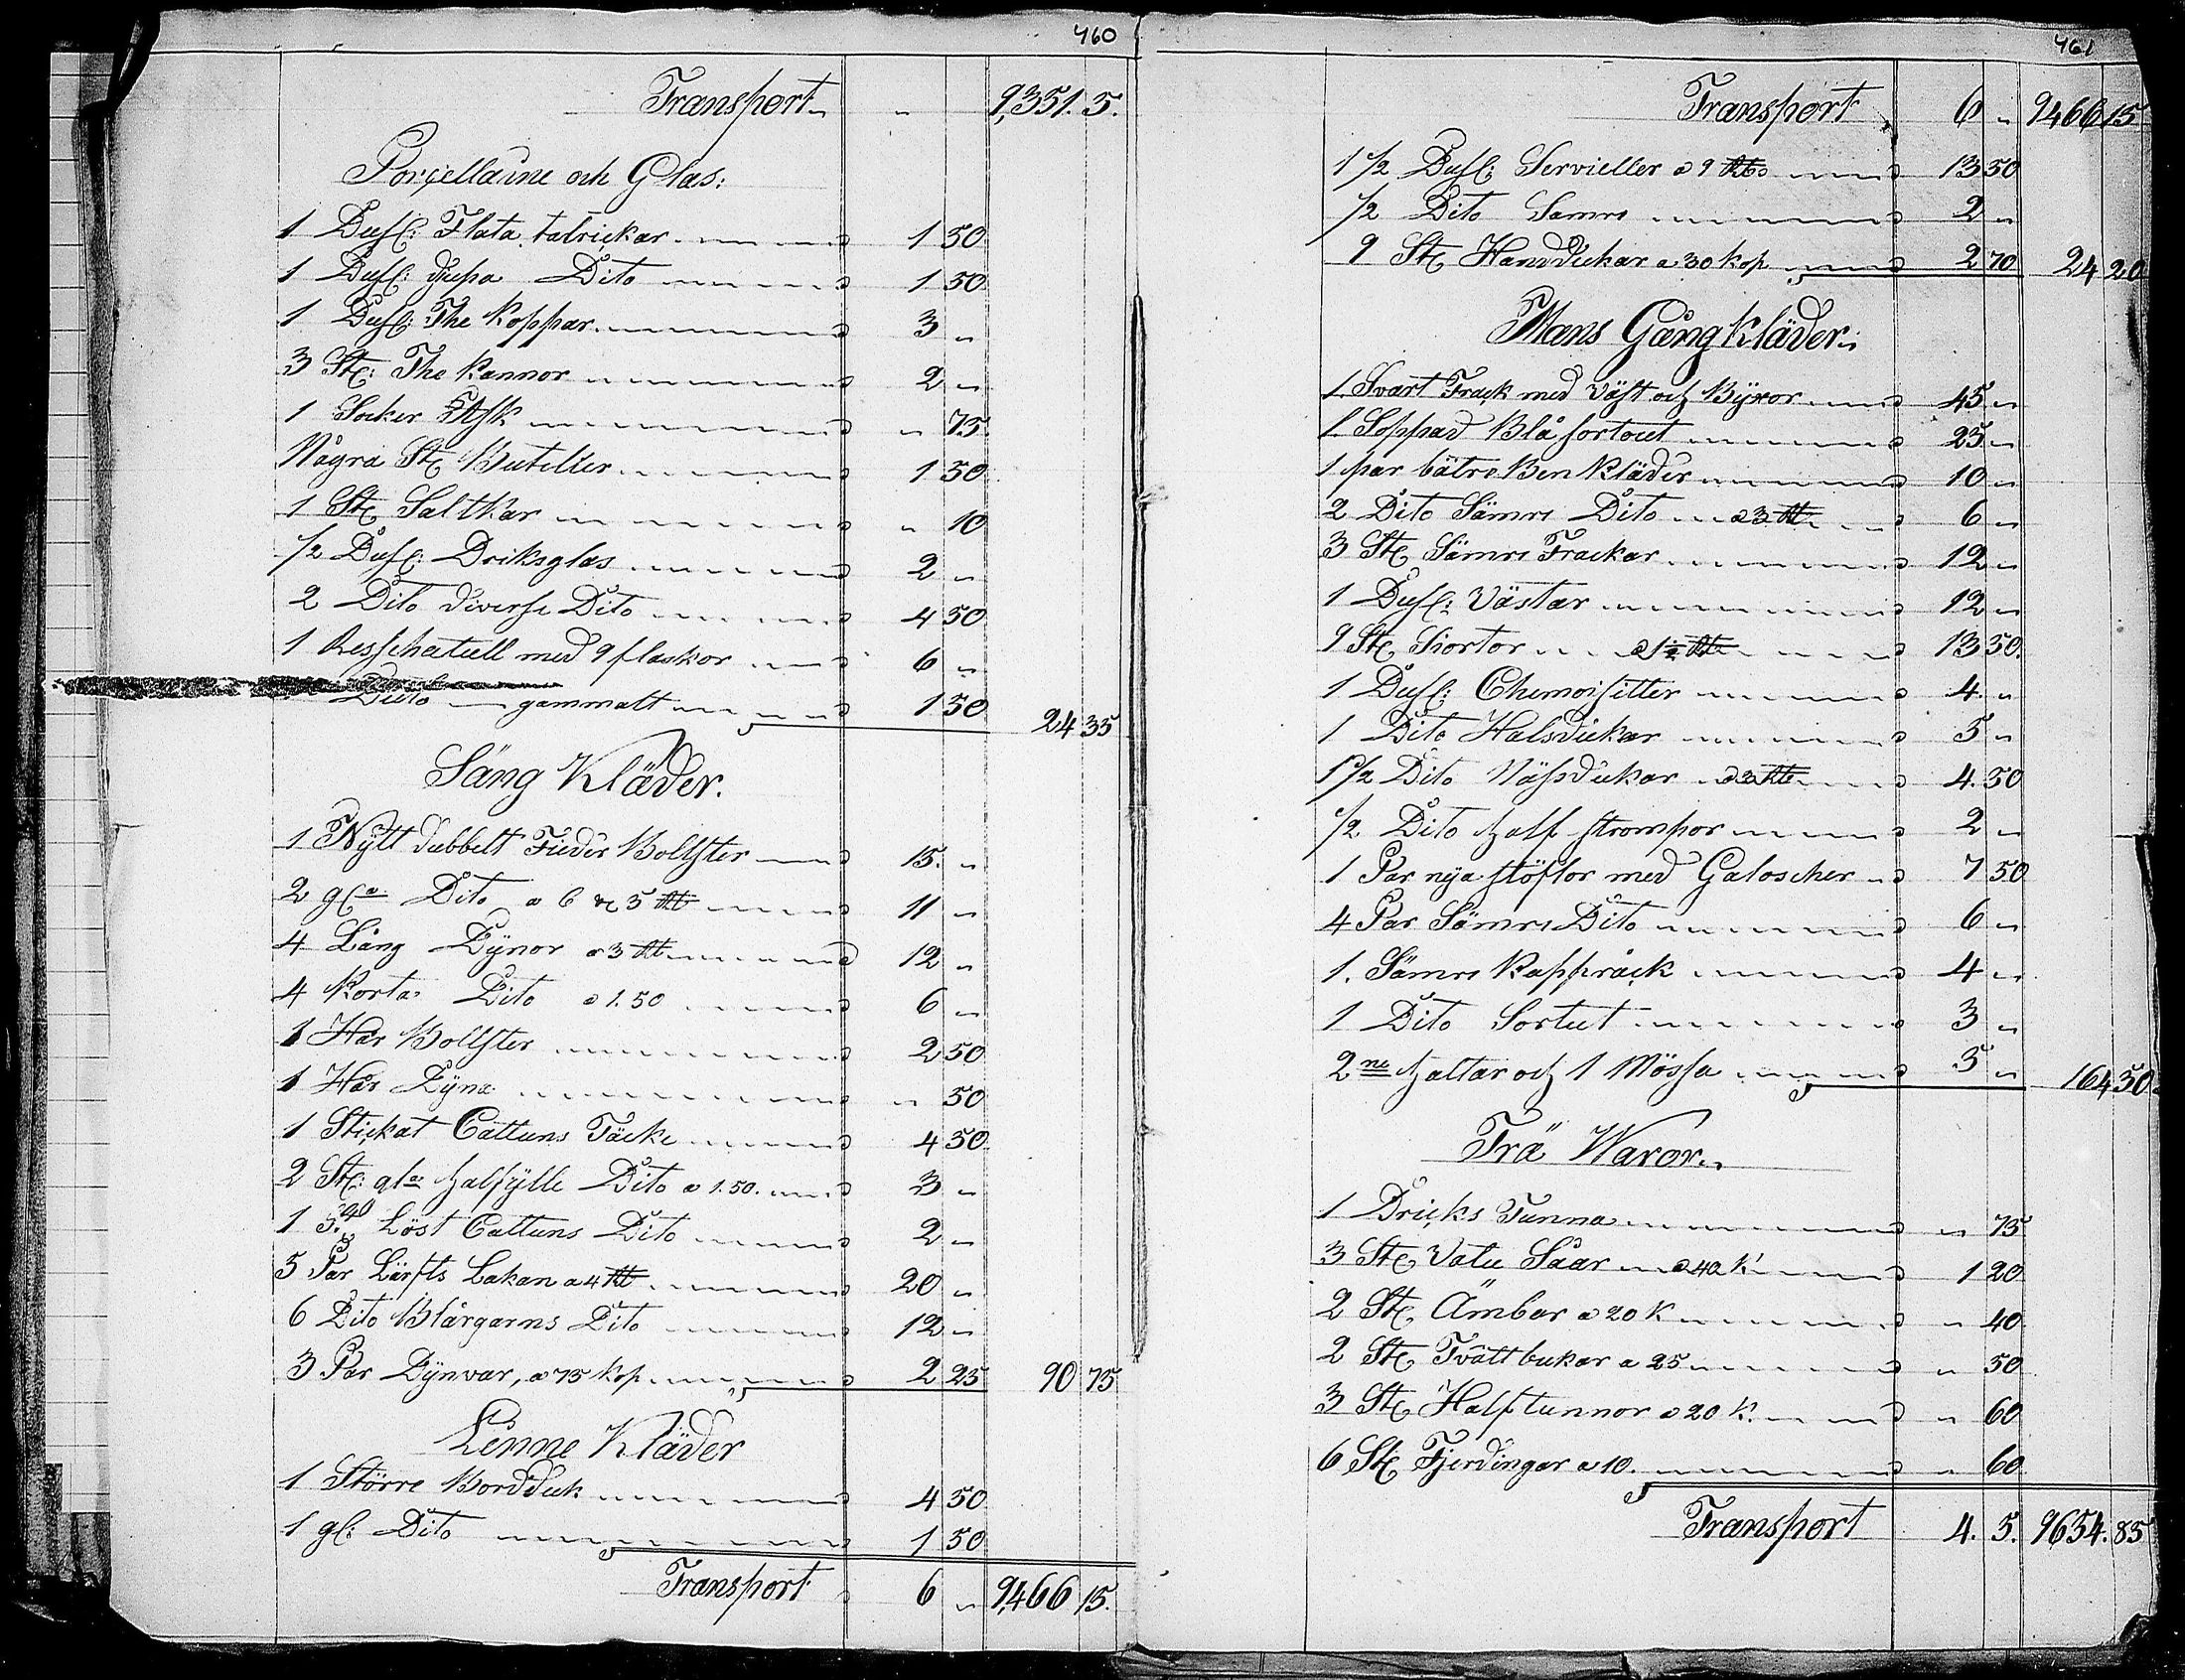 460
Transport " 9,351. 5.
Porcellaine och Glas:
1 Duss: Flata talrickar 1 50
1 Duss: djupa Dito 1 50
1 Duss: The Koppar 3 "
3 St: The Kannor 2 "
1 Socker Ask " 75.
Några St Buteljer 1 50
1 St Saltkar " 10
1/2 Duss: Driksglas 2 "
2 Dito diverse Dito 4 50
1 Resschatull med 9 flaskor 6 "
Dito gammalt 1 50 24 35
Säng Kläder.
1 Nytt dubbelt Fieder Bollster 15. "
2 gla Dito a 6 & 5 Rb 11 "
4 Lång Dÿnor a 3 Rb 12 "
4 Korta Dito a 1.50 6 "
1 Hår Bollster 2 50
1 Hår Dÿna " 50
1 Stickat Cattuns Täcke 4 50
2 St: gla halfÿlle Dito a 1.50. 3 "
1 Löst Cattuns Dito 2 "
5 Par Lärfts Lakan a 4 Rb 20 "
6 Dito Blårgarns Dito 12 "
3 Par Dÿnvar, a 75 kop. 2 25 90 75
Linne Kläder
1 Större Bordduk 4 50
1 gl: Dito 1 50
Transport 6 " 9,466 15.
461
Transport 6 " 9466 15
1 1/2 Duss: Servietter a 9 Rb 13 50
1/2 Dito Sämre 2 "
9 St Handdukar a 30 kop 2 70 24 20
Mans Gångkläder.
1. Svart Frack med Väst och Bÿxor 45 "
1. Soppad Blå sortout 25 "
1 par bätre Benkläder 10 "
2 Dito Sämre Dito a 3 Rb 6 "
3 St Sämre Frackar 12 "
1 Duss: Västar 12 "
9 St Skjortor a 1 1/2 Rb 13 50.
1 Duss: Chemoisitter 4. "
1 Dito Halsdukar 5 "
1 1/2 Dito Näsdukar a 3 Rb 4. 50
1/2 Dito half strompor 2 "
1 Par nya stöflor med Galoscher 7 50
4 Par Sämre Dito 6 "
1. Sämre Kappråck 4 "
1 Dito Sortut 3 "
2ne hattar och 1 Mössa 5 " 164 50
Trä Waror.
1 Dricks Tunna " 75
3 St Vatu Såar a 40 K. 1 20
2 St Ämbar a 20 K " 40
2 St Tvättbukar a 25 " 50
3 St Halftunnor a 20 K. " 60
6 St Fjerdingar a 10. " 60
Transport 4. 5. 9654. 85